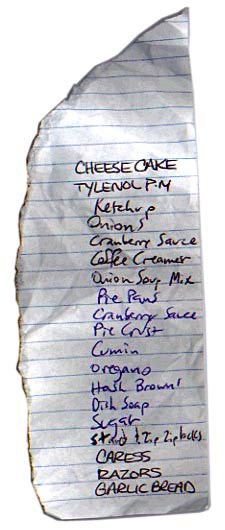 CHEESE CAKE
TYLENOL P.M
Ketchup
Onions
Cranberry Sauce
Coffee Creamer
Onion Soup Mix
Pie Pans
Cranberry Sauce
Pie Crust
Cumin
oregano
Hash Browns
Dish Soap
Sugar
Zip Ziplocks
CARESS
RAZORS
GARLIC BREAD